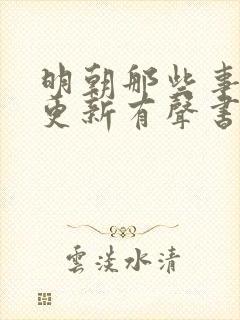 明朝那些事
更新有聲書
雲淡水清